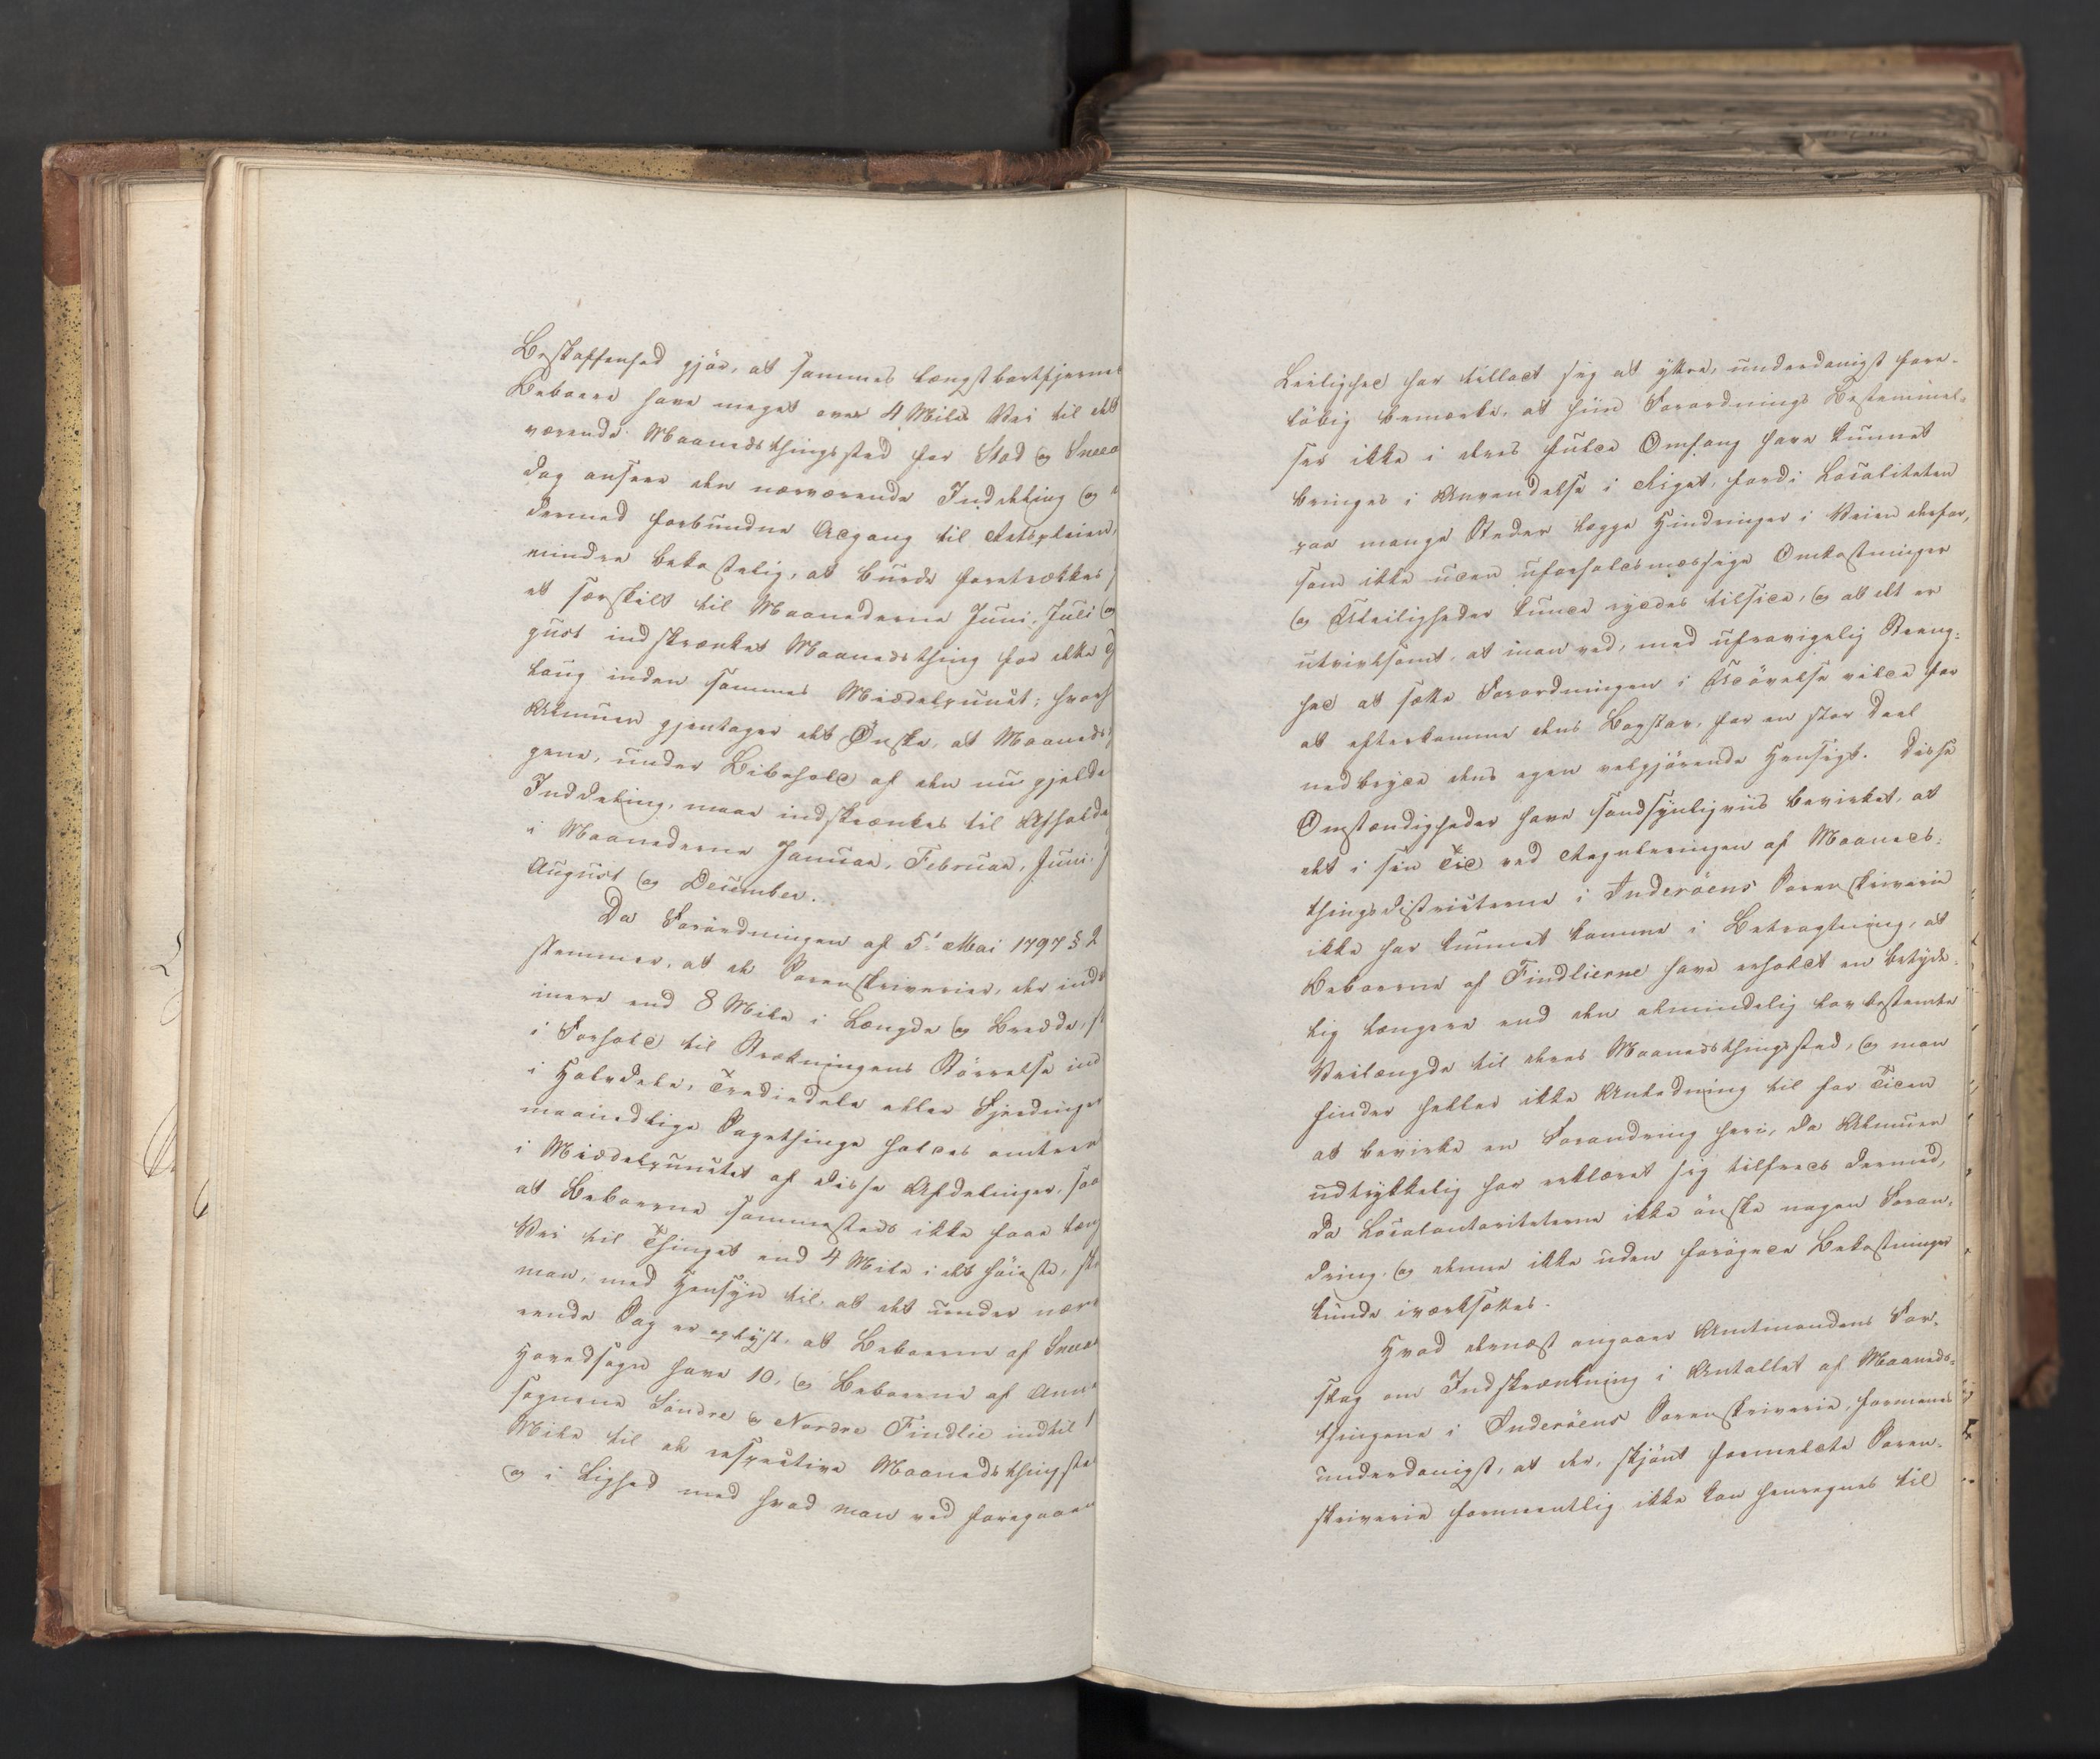 Beskaffenhed gjør, at sammes længst bortfjernede
Beboere have meget over 4 Miles Vei til det
værende Maanedsthingsted for Stod og Snaasen
dog ansees den nærværende Inddeling og
dermed forbundne Adgang til Retspleien,
mindre bekostelig, at burde foretrækkes
et særskilt til Maanederne Juni, Juli og
gust indskrænket Maanedsthing for dette
laug inden sammes Middelpunct; hvorhos
Almuen gjentager det Ønske, at Maaneds
gene, under Bibehold af den nu gjeldende
Inddeling, maae indskrænkes til Afholdelse
i Maanederne Januar, Februar, Juni,
August og December.
Da Forordningen af 5' Mai 1797 § 2
stemmer, at de Sorenskriverier, der inde
mere end 8 Mile i Længde og Bredde,
i Forhold til Strækningens Størrelse ind
i Halvdele, Trediedele eller Fjerdinger
maanedlige Sagethinge holdes omtrent
i Middelpunctet af disse Afdelinger, saa
at Beboerne sammesteds ikke faae læng
Vei til Thinget end 4 Mile i det høieste,
man, med Hensyn til, at det under nær
rende Sag er oplyst, at Beboerne af Snaasen
Hovedsogn have 10, og Beboerne af Annex
sognene Søndre og Nordre Findlie indtil 1
Mile til de respective Maanedsthingsted
og i Lighed med hvad man ved foregaaen
Leilighed har tilladt sig at yttre, underdanigst fore-
løbig bemærke, at hiin Forordnings Bestemmel-
ser ikke i deres fulde Omfang have kunnet
bringes i Anvendelse i Riget, fordi Localiteten
paa mange Steder lægge Hindringer i Veien derfor,
som ikke uden uforholdsmæssige Omkostninger
og Uleiligheder kunde rydes tilside, og at det er
utvivlsomt, at man ved, med ufravigelig Streng-
hed at sætte Forordningen i Udøvelse vilde for
at efterkomme dens Bogstav, for en stor Deel
nedbryde dens egen velgjørende Hensigt. Disse
Omstændigheder have sandsynligviis bevirket, at
det i sin Tid ved Reguleringen af Maaneds-
thingsdistricterne i Inderöens Sorenskriverie
ikke har kunnet komme i Betragtning, at
Beboerne af Findlierne have erholdt en betyde-
lig længere end den almindelig lovbestemte
Veilængde til deres Maanedsthingsted, og man
finder heller ikke Anledning til for Tiden
at bevirke en Forandring heri, da Almuen
udtrykkelig har erklæret sig tilfreds dermed,
da Localautoriteterne ikke ønske nogen Foran-
dring, og denne ikke uden forøgede Bekostninger
kunde iværksættes.
Hvad dernæst angaaer Amtmandens For-
slag om Indskrænkning i Antallet af Maaneds-
thingene i Inderöens Sorenskriverie, formenes
underdanigst, at der, skjønt formeldte Soren-
skriverie formeentlig ikke kan henregnes til